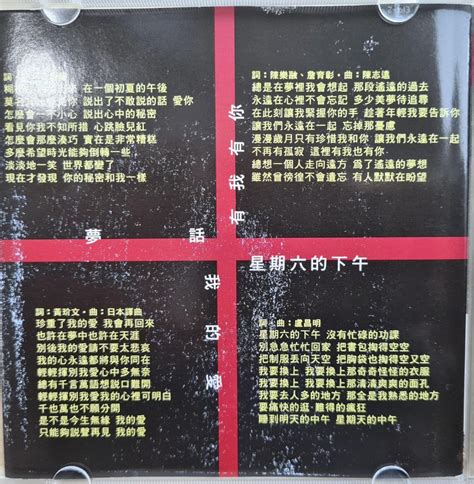 詞：
在一個初夏的午後
說出了不敢說的話 愛你
怎麼會一不小心 說出心中的秘密
看見你我不知所措 心跳臉兒紅
怎麼會那麼湊巧 實在是非常糟糕
多麼希望時光能夠倒轉一些
淡淡地一笑 世界都變了
現在才發現 你的秘密和我一樣
夢話
詞：陳樂融、詹育彰・曲：陳志遠
總是在夢裡我會想起 那段遙遠的過去
永遠在心裡不會忘記 多少美夢待追尋
在此刻讓我緊握你的手 趁著年輕我要告訴你
讓我們永遠在一起 忘掉那憂慮
漫漫歲月只有珍惜我和你 讓我們永遠在一起
不再有孤寂 這裡有我也有你
總想一個人走向遠方 爲了遙遠的夢想
雖然曾徬徨不會遺忘 有人默默在盼望
有我有你
詞：黃玠文・曲：日本譯曲
珍重了我的愛 我會再回來
也許在夢中也許在天涯
別後我的愛請不要太悲哀
我的心永遠都將與你同在
輕輕揮別我愛心中多無奈
總有千言萬語想說口難開
輕輕揮別我愛我的心裡可明白
千也萬也不願分開
是不是今生無緣 我的愛
只能夠說聲再見 我的愛
我的愛
星期六的下午
詞、曲：盧昌明
星期六的下午 沒有忙碌的功課
別急急忙忙回家 把書包掏得空空
把制服丟向天空 把胸袋也掏得空又空
我要換上 我要換上 那奇奇怪怪的衣服
我要換上 我要換上 那清清爽爽的面孔
我要去人多的地方 那全是我熟悉的地方
要痛快的逛 難得的瘋狂
睡到明天的中午 星期天的中午